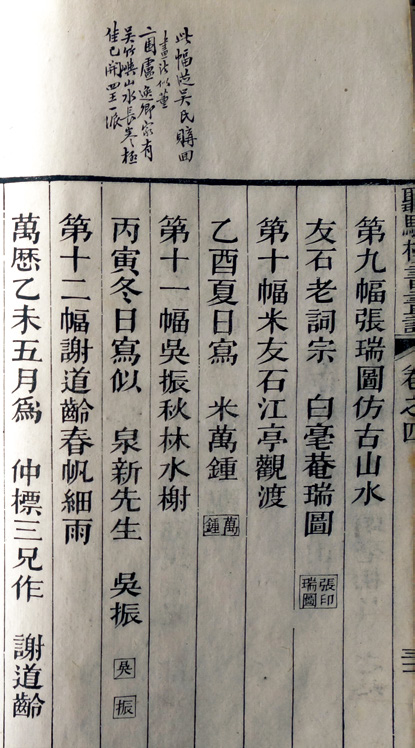 此幅從吳氏購回
畫法似董
二因盧逸卿家有
吳竹嶼山水長卷極
佳已開四王一派
聽驂樓書畫記 卷之四
第九幅張瑞圖仿古山水
友石老詞宗 白毫菴瑞圖 張印瑞圖
第十幅米友石江亭觀渡
乙酉夏日寫 米萬鍾 萬鍾
第十一幅吳振秋林水榭
丙寅冬日寫似 泉新先生 吳振 吳 振
第十二幅謝道齡春帆細雨
萬歷乙未五月爲 仲標三兄作 謝道齡